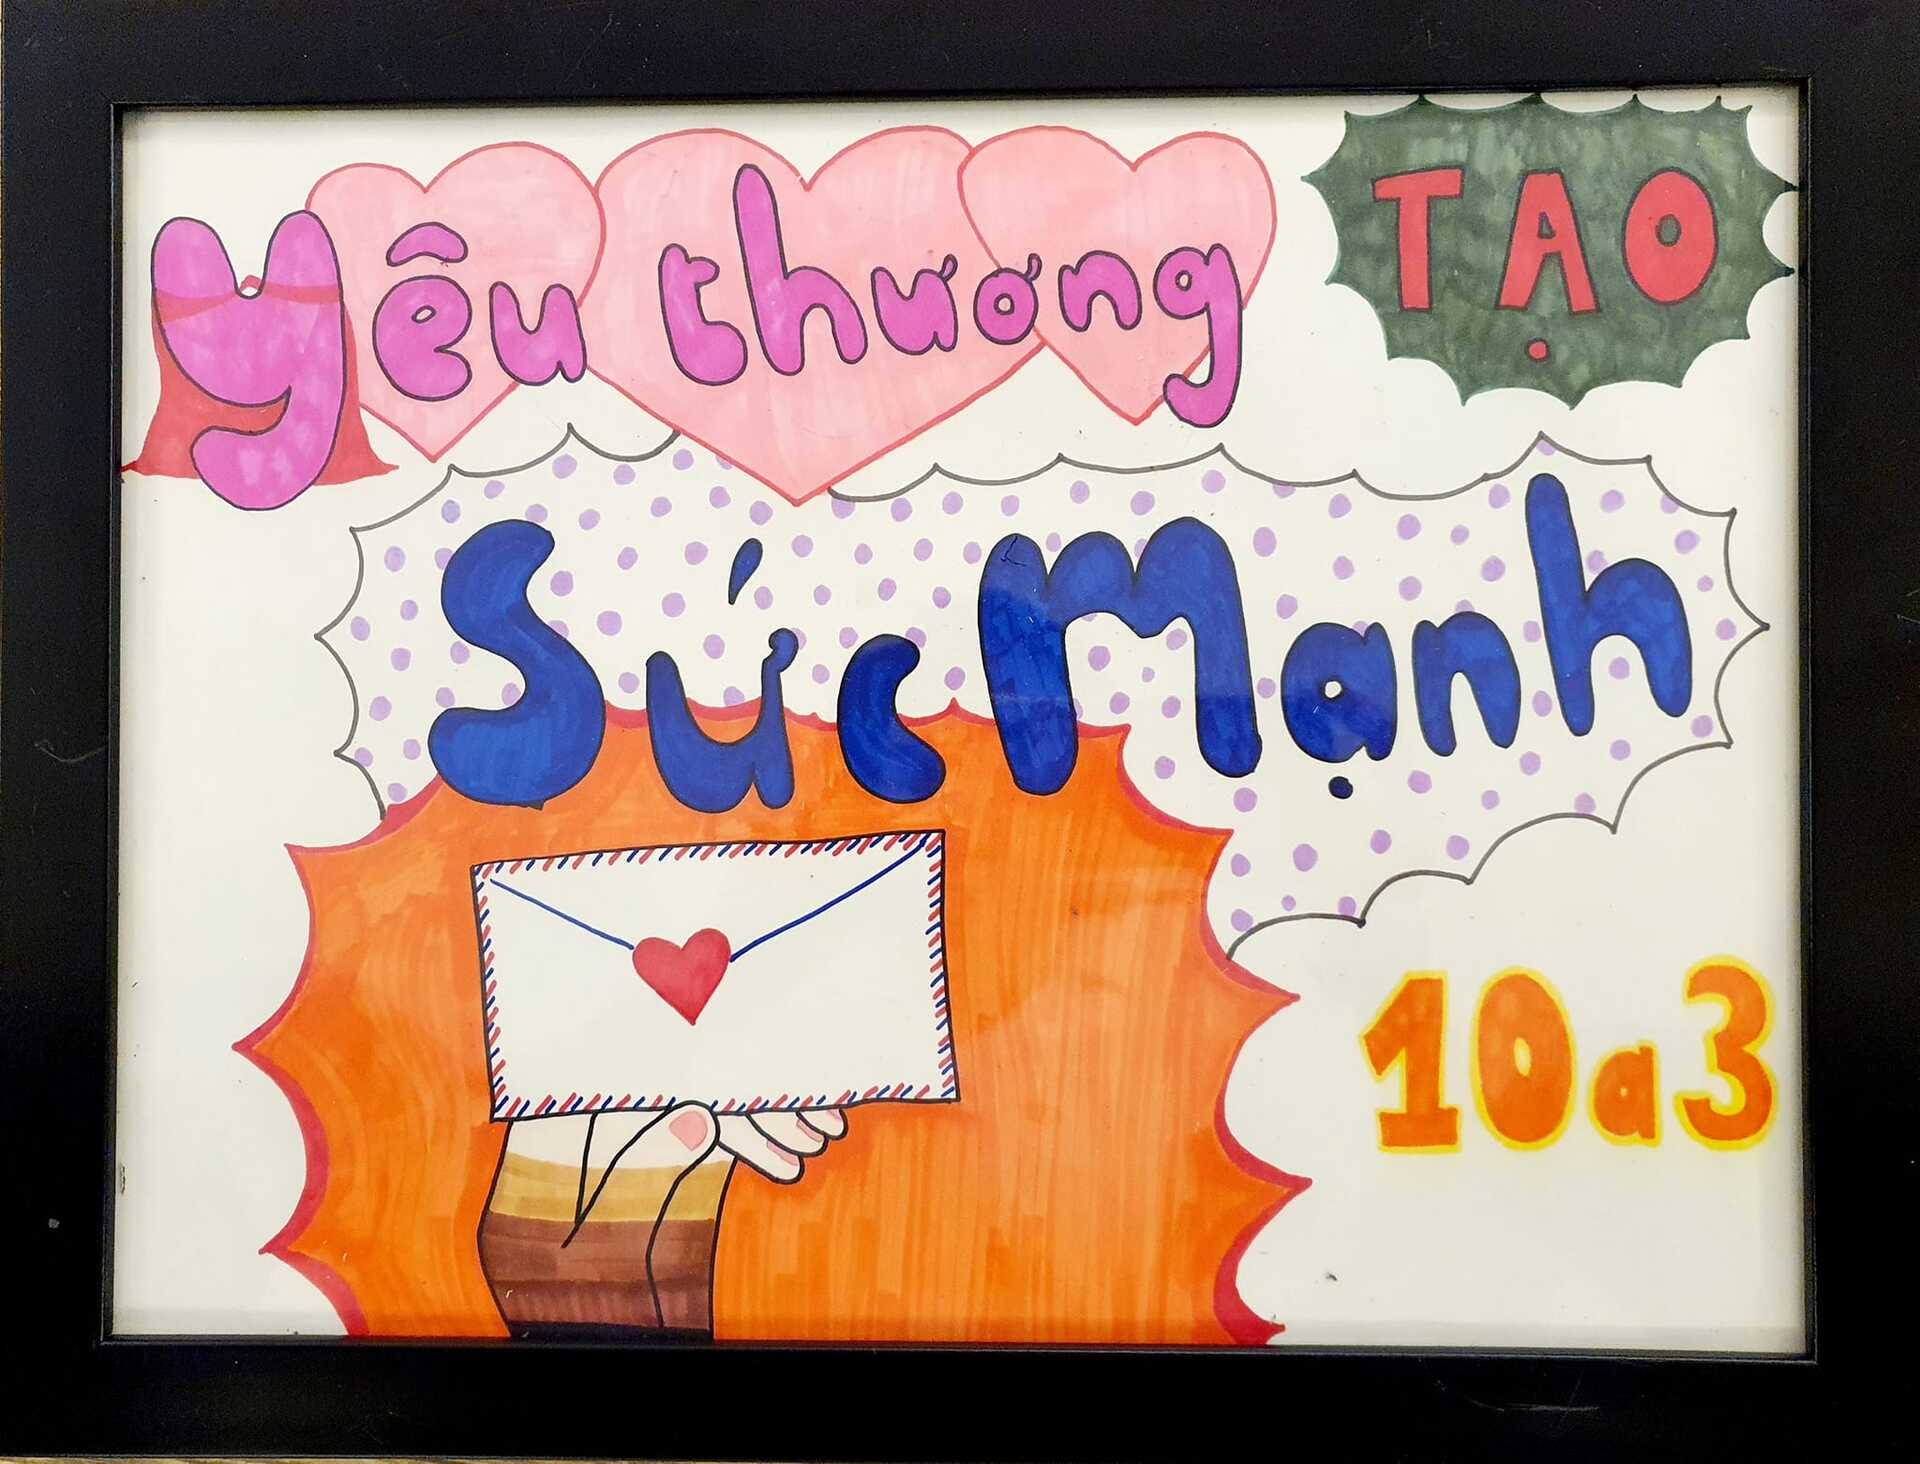 Yêu thương TẠO
Sức Mạnh
10a3